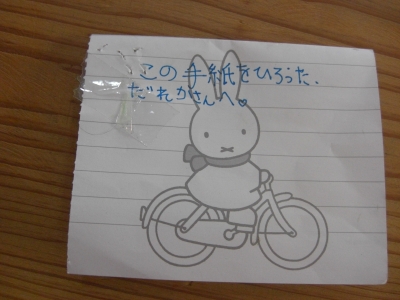 この手紙をひろった.
だれかさんへ。